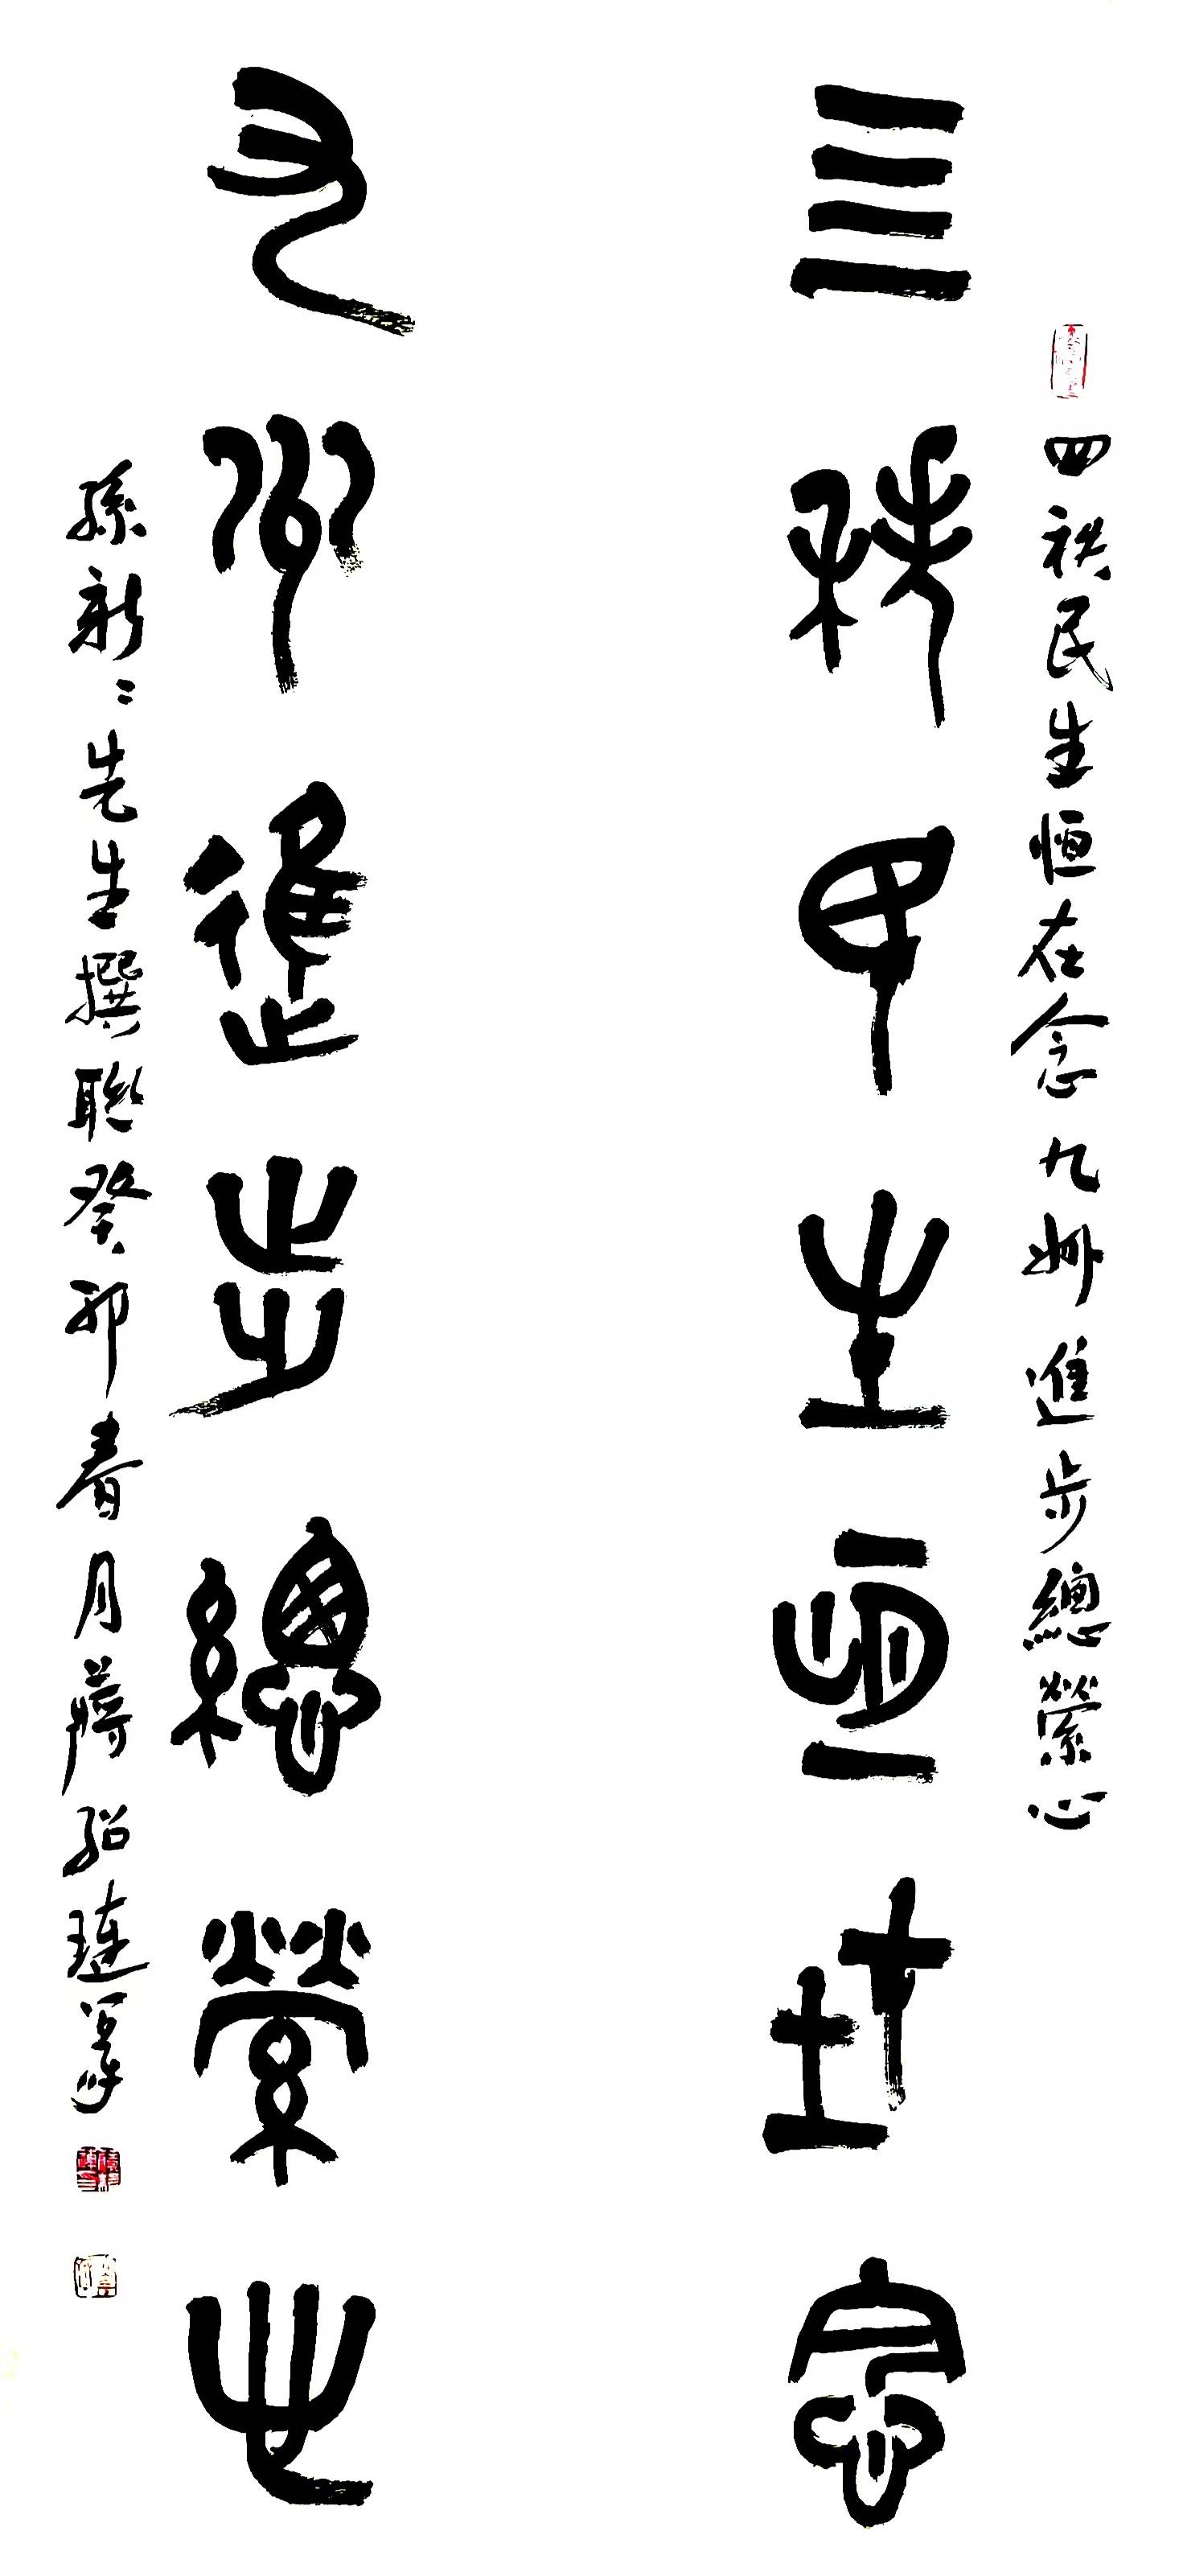 四秩民生恒在念
四祑民生恒在念九州進步總縈心
九州進步總縈心
孫新二先生撰聯癸卯春月蔣紹璉篆